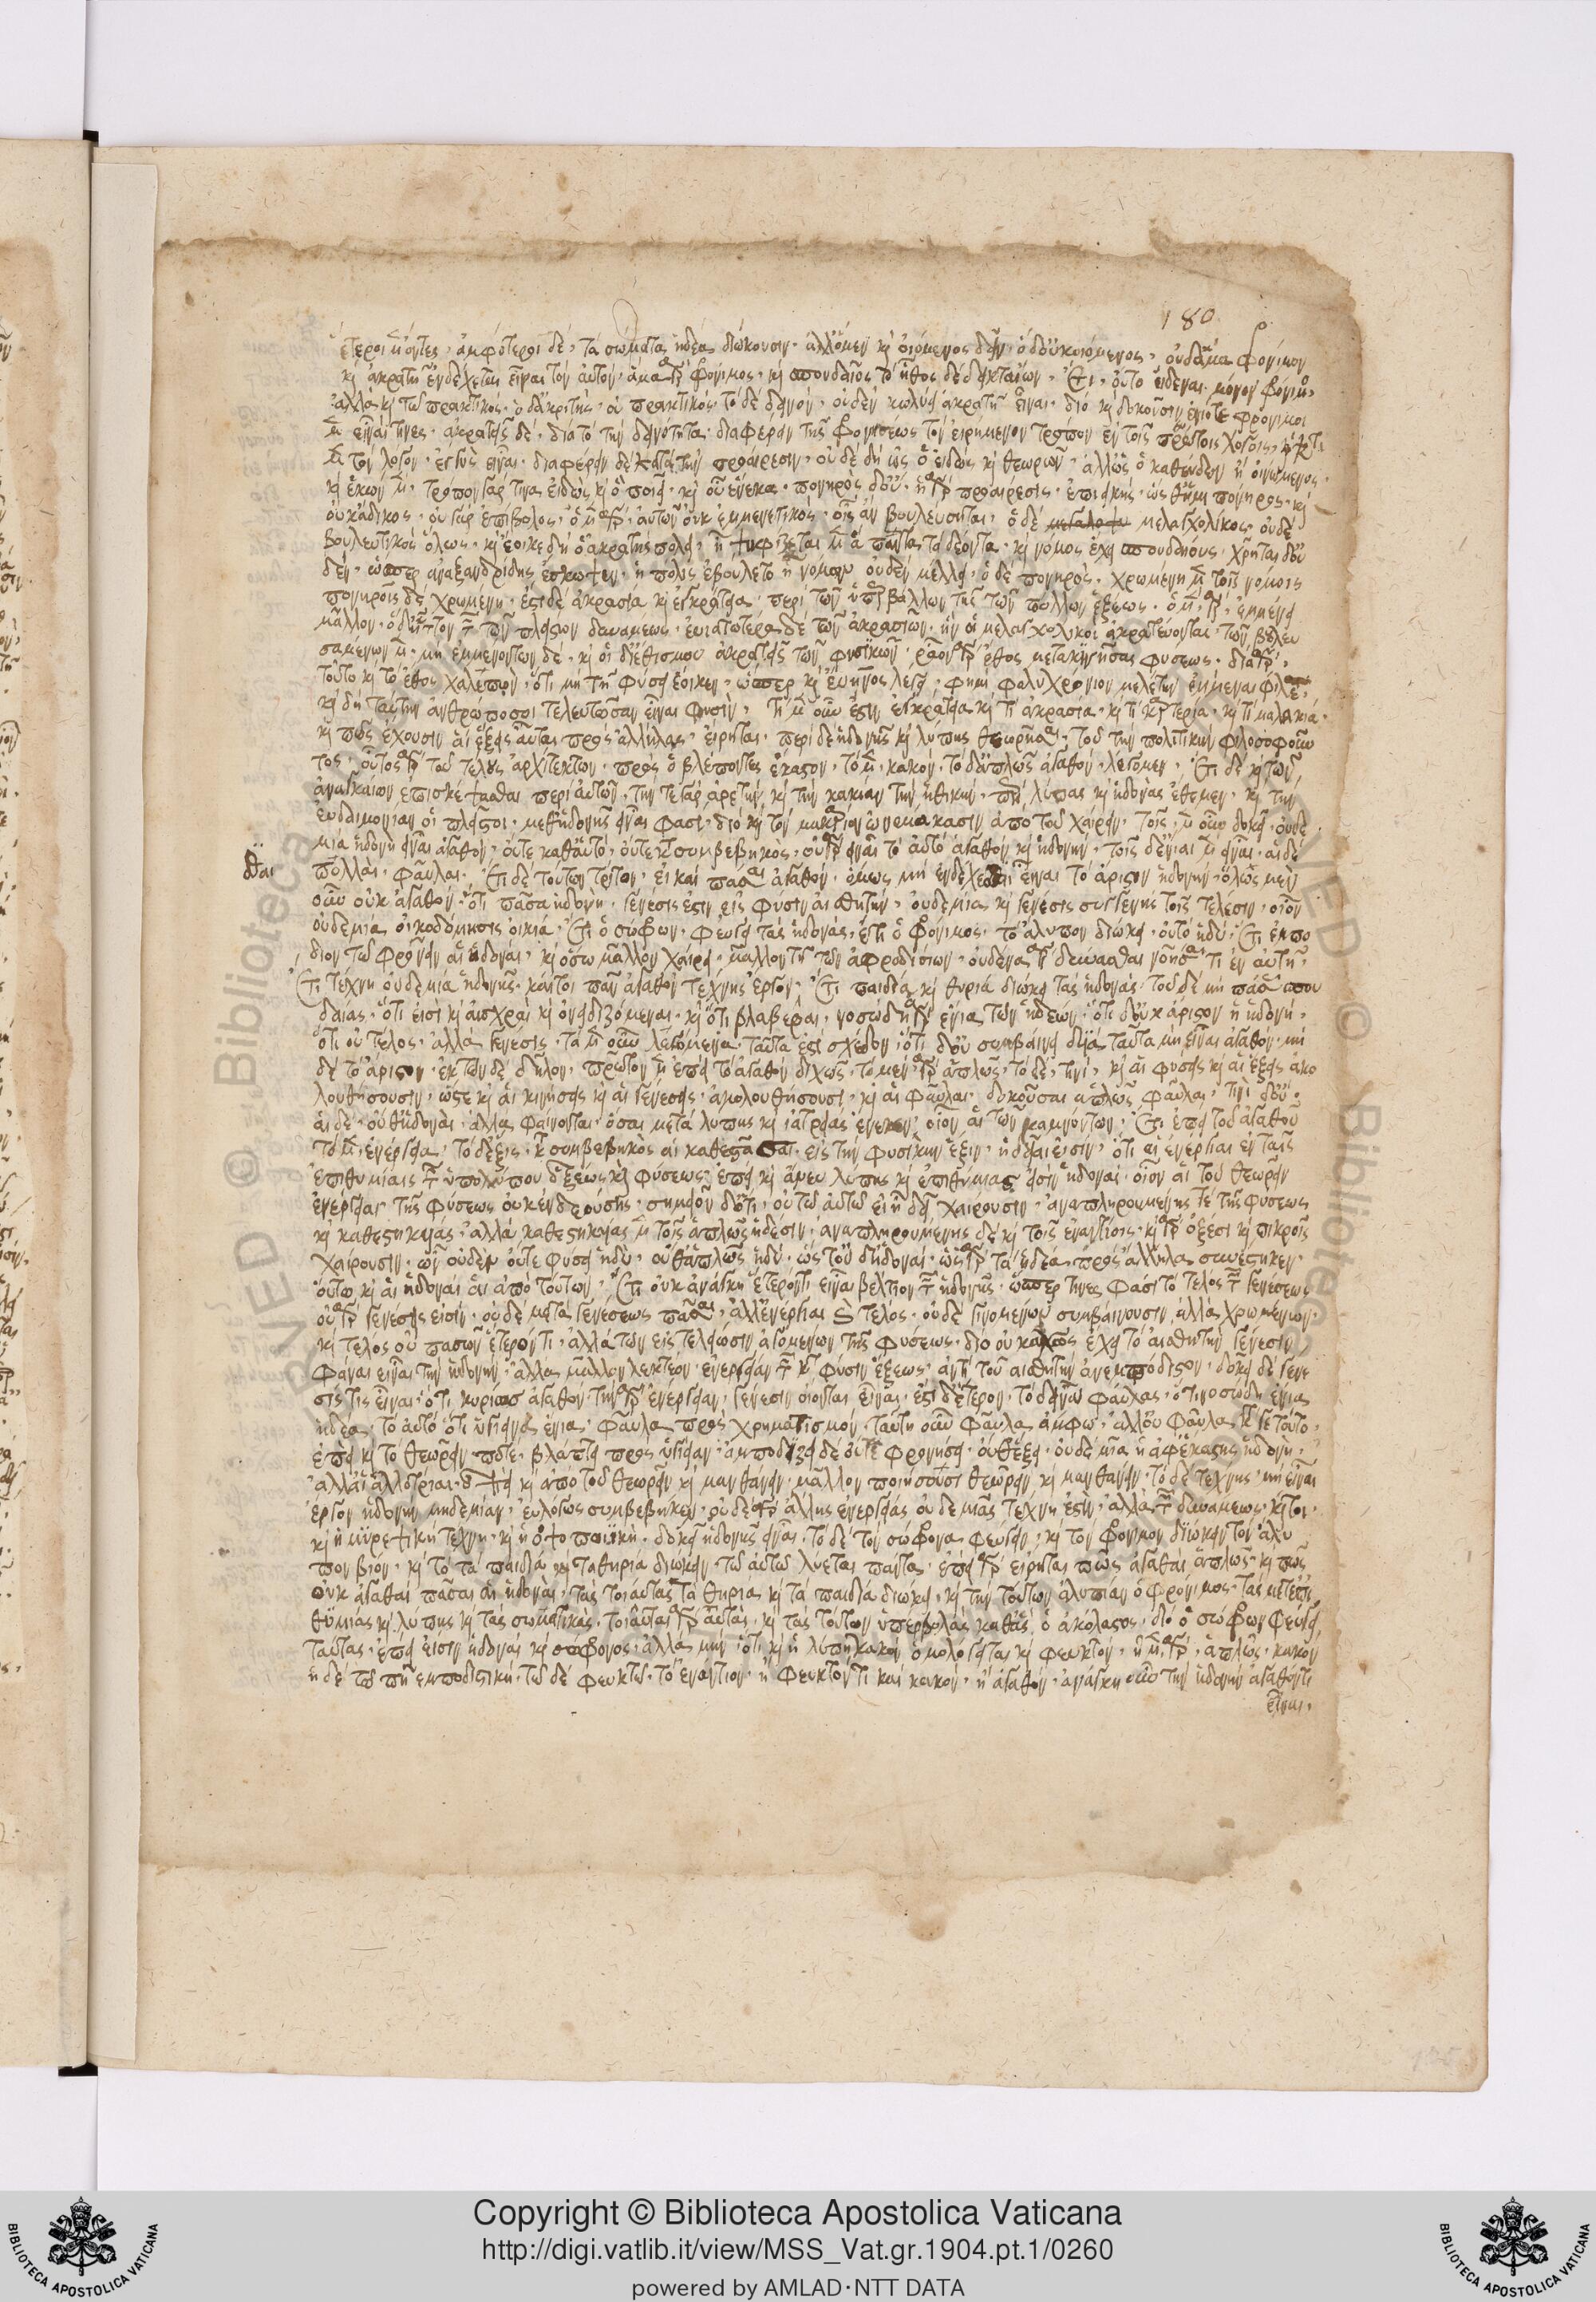 180
ἕτεροι μὲν ὄντες, ἀμφότεροι δὲ, τὰ σωματικὰ ἡδέα διώκουσιν· ἀλλ' ὁ μὲν καὶ οἰόμενος δεῖν· ὁ δ' οὐκ οἰόμενος, οὐδ' ἅμα φρόνιμον
καὶ ἀκρατῆ ἐνδέχεται εἶναι τὸν αὐτόν· ἅμα γὰρ φρόνιμος, καὶ σπουδαῖος τὸ ἦθος δέδεικται ὤν. Ἔτι, οὐ τῷ εἰδέναι μόνον φρόνιμος,
ἀλλὰ καὶ τῷ πρακτικός· ὁ δ' ἀκρατὴς, οὐ πρακτικός· τὸν δὲ δεινὸν, οὐδὲν κωλύει ἀκρατῆ εἶναι· διὸ καὶ δοκοῦσιν ἐνίοτε φρόνιμοι
μὲν εἶναί τινες, ἀκρατεῖς δέ· διὰ τὸ τὴν δεινότητα διαφέρειν τῆς φρονήσεως τὸν εἰρημένον τρόπον ἐν τοῖς πρώτοις λόγοις, καὶ κατὰ
μὲν τὸν λόγον, ἐγγὺς εἶναι· διαφέρειν δὲ κατὰ τὴν προαίρεσιν, οὐδὲ δὴ ὡς ὁ εἰδὼς καὶ θεωρῶν, ἀλλ' ὡς ὁ καθεύδων ἢ οἰνωμένος,
καὶ ἑκὼν μὲν, τρόπον γάρ τινα εἰδὼς καὶ ὃ ποιεῖ, καὶ οὗ ἕνεκα· πονηρὸς δ' οὔ· ἡ γὰρ προαίρεσις, ἐπιεικής· ὥσθ' ἡμιπόνηρος· καὶ
οὐκ ἄδικος· οὐ γὰρ ἐπίβουλος· ὁ μὲν γὰρ αὐτῶν οὐκ ἐμμενετικὸς, οἷς ἂν βουλεύσηται· ὁ δὲ μελαγχολικὸς, οὐδὲ
βουλευτικὸς ὅλως· καὶ ἔοικε δὴ ὁ ἀκρατὴς πόλει, ἣ ψηφίζεται μὲν ἃ πάντα τὰ δέοντα, καὶ νόμους ἔχει σπουδαίους, χρῆται δ' οὐ
δὲν, ὥσπερ ἀναξανδρίδης ἔσκωψεν, ἡ πόλις ἐβούλετο ᾗ νόμων οὐδὲν μέλει, ὁ δὲ πονηρὸς, χρωμένη μὲν τοῖς νόμοις
πονηροῖς δὲ χρωμένη· ἔστι δὲ ἀκρασία καὶ ἐγκράτεια, περὶ τῶν ὑπερβάλλων τῆς τῶν πολλῶν ἕξεως· ὁ μὲν γὰρ, ἐμμένει
μᾶλλον, ὁ δ' ἧττον τῆς τῶν πλείστων δυνάμεως. εὐιατωτέρα δὲ τῶν ἀκρασιῶν, ἣν οἱ μελαγχολικοὶ ἀκρατεύονται, τῶν βουλευ
σαμένων μὲν, μὴ ἐμμενόντων δέ, καὶ οἱ δι' ἐθισμοῦ ἀκρατεῖς τῶν φυσικῶν· ῥᾷον γὰρ ἔθος μετακινῆσαι φύσεως· διὰ γὰρ
τοῦτο καὶ τὸ ἔθος χαλεπὸν, ὅτι μὴ τῇ φύσει ἔοικεν, ὥσπερ καὶ ἔυηνος λέγει, φημὶ φαλυχρόνιον μελέτην ἐμμέναι φίλε,
καὶ δὴ ταύτην ἀνθρώποισι τελευτῶσαν εἶναι φύσιν. Τί μὲν οὖν ἐστιν ἐγκράτεια καὶ τί ἀκρασία, καὶ τί καρτερία, καὶ τί μαλακία·
καὶ πῶς ἔχουσιν αἱ ἕξεις αὗται πρὸς ἀλλήλας, εἴρηται. περὶ δὲ ἡδονῆς καὶ λύπης θεωρῆσαι, τοῦ τὴν πολιτικὴν φιλοσοφοῦν
τος, οὗτος γὰρ τοῦ τέλους ἀρχιτέκτων, πρὸς ὃ βλέποντες ἕκαστον, τὸ μὲν κακὸν, τὸ δ' ἁπλῶς ἀγαθὸν λέγομεν. Ἔτι δὲ καὶ τῶν
ἀναγκαίων ἐπισκέψασθαι περὶ αὐτῶν, τὴν τε γὰρ ἀρετὴν καὶ τὴν κακίαν τὴν ἠθικὴν, περὶ λύπας καὶ ἡδονὰς ἔθεμεν. καὶ τὴν
εὐδαιμονίαν οἱ πλεῖστοι, μεθ' ἡδονῆς εἶναι φασί. διὸ καὶ τὸν μακάριον ὠνομάκασιν ἀπὸ τοῦ χαίρειν. τοῖς μὲν οὖν δοκεῖ, οὐδε
μία ἡδονὴ εἶναι ἀγαθὸν, οὔτε καθ' αὑτὸ, οὔτε κατὰ συμβεβηκὸς, οὐ γὰρ εἶναι τὸ αὐτὸ ἀγαθὸν καὶ ἡδονήν, τοῖς δ' ἔνιαι μὲν εἶναι, αἱ δὲ
θαι
πολλαὶ, φαῦλαι. Ἔτι δὲ τούτων τρίτον, εἰ καὶ πᾶσαι ἀγαθὸν, ὅμως μὴ ἐνδέχεσθαι εἶναι τὸ ἄριστον ἡδονήν· ὅλως μὲν
οὖν οὐκ ἀγαθὸν, ὅτι πᾶσα ἡδονὴ, γένεσίς ἐστιν εἰς φύσιν αἰσθητὴν, οὐδεμία καὶ γένεσις συγγενὴς τοῖς τέλεσιν, οἷον
οὐδεμία οἰκοδόμησις οἰκία. Ἔτι ὁ σώφρων, φεύγει τὰς ἡδονὰς, ἔτι ὁ φρόνιμος, τὸ ἄλυπον διώκει, οὐ τὸ ἡδύ. Ἔτι ἐμπό
διον τῷ φρονεῖν αἱ ἡδοναὶ, καὶ ὅσῳ μᾶλλον χαίρει, μᾶλλον τῇ τῶν ἀφροδισίων, οὐδένα γὰρ δύνασθαι νοῆσαι τι ἐν αὐτῇ.
Ἔτι τέχνη οὐδεμία ἡδονῆς· καίτοι πᾶν ἀγαθὸν τέχνης ἔργον· Ἔτι παιδία καὶ θηρία διώκει τὰς ἡδονάς· τοῦ δὲ μὴ πάσας σπου
δαίας, ὅτι εἰσὶ καὶ αἰσχραὶ καὶ ὀνειδιζόμεναι, καὶ ὅτι βλαβεραί, νοσώδη γὰρ ἔνια τῶν ἡδέων· ὅτι δ' οὐκ ἄριστον ἡ ἡδονὴ,
ὅτι οὐ τέλος, ἀλλὰ γένεσις. τὰ μὲν οὖν λεγόμενα ταῦτα ἐστὶ σχεδόν· ὅτι δ' οὐ συμβαίνει διὰ ταῦτα μὴ εἶναι ἀγαθὸν, μὴ
δὲ τὸ ἄριστον, ἐκ τῶνδε δῆλον. πρῶτον μὲν ἐπεὶ τὸ ἀγαθὸν διχῶς, τὸ μὲν γὰρ ἁπλῶς, τὸ δὲ, τινὶ, καὶ αἱ φύσεις καὶ αἱ ἕξεις ἀκο
λουθήσουσιν, ὥστε καὶ αἱ κινήσεις καὶ αἱ γενέσεις, ἀκολουθήσουσι, καὶ αἱ φαῦλαι δοκοῦσαι ἁπλῶς φαῦλαι, τινὶ δ' οὔ·
αἱ δὲ, οὐθ' ἡδοναὶ, ἀλλὰ φαίνονται, ὅσαι μετὰ λύπης καὶ ἰατρείας ἕνεκεν, οἷον αἱ τῶν καμνόντων. Ἔτι ἐπεὶ τοῦ ἀγαθοῦ
τὸ μὲν ἐνέργεια, τὸ δ' ἕξις, κατὰ συμβεβηκὸς αἱ καθεστᾶσαι εἰς τὴν φυσικὴν ἕξιν, ἡδεῖαι εἰσίν, ὅτι αἱ ἐνέργειαι ἐν ταῖς
ἐπιθυμίαις τῆς ὑπολοίπου δ' ἕξεως καὶ φύσεως· ἐπεὶ καὶ ἄνευ λύπης καὶ ἐπιθυμίας εἰσὶν ἡδοναὶ, οἷον αἱ τοῦ θεωρεῖν
ἐνέργειαι τῆς φύσεως οὐκ ἐνδεοῦσης, σημεῖον δ' ὅτι, οὐ τῷ αὐτῷ εἰ ἡδεῖ χαίρουσιν, ἀναπληρουμένης τὲ τῆς φύσεως
καὶ καθεστηκυίας, ἀλλὰ καθεστηκυίας μὲν τοῖς ἁπλῶς ἡδέσιν, ἀναπληρουμένης δὲ καὶ τοῖς ἐναντίοις, καὶ γὰρ ὀξέσι καὶ πικροῖς
χαίρουσιν, ὧν οὐδὲν οὔτε φύσει ἡδὺ, οὐθ' ἁπλῶς ἡδύ, ὥστ' οὐδ' ἡδοναί, ὡς γὰρ τὰ ἡδέα πρὸς ἄλληλα συνέστηκεν,
οὕτω καὶ αἱ ἡδοναὶ αἱ ἀπὸ τούτων. Ἔτι οὐκ ἀνάγκη ἕτερόν τι εἶναι βέλτιον τῆς ἡδονῆς, ὥσπερ τινὲς φασὶ τὸ τέλος τῆς γενέσεως
οὐ γὰρ γενέσεις εἰσὶν, οὐδὲ μετὰ γενέσεως πᾶσαι, ἀλλ' ἐνέργειαι καὶ τέλος, οὐδὲ γινομένων συμβαίνουσιν, ἀλλὰ χρωμένων,
καὶ τέλος οὐ πασῶν ἕτερόν τι, ἀλλὰ τῶν εἰς τελείωσιν ἀγομένων τῆς φύσεως· διὸ οὐ καλῶς ἔχει τὸ αἰσθητὴν γένεσιν
φάναι εἶναι τὴν ἡδονὴν, ἀλλὰ μᾶλλον λεκτέον, ἐνέργειαν τῆς κατὰ φύσιν ἕξεως, ἀντὶ τοῦ αἰσθητὴν ἀνεμπόδιστον, δοκεῖ δὲ γένε
σίς τις εἶναι, ὅτι κυρίως ἀγαθόν· τὴν γὰρ ἐνέργειαν, γένεσιν οἴονται εἶναι, ἔστι δ' ἕτερον. τὸ δ' εἶναι φαύλας, ὅτι νοσώδη ἔνια
ἡδέα, τὸ αὐτὸ ὅτι ὑγιεινὰ ἔνια φαῦλα πρὸς χρηματισμόν, ταύτῃ οὖν φαῦλα ἄμφω, ἀλλ' οὐ φαῦλα κατά γε τοῦτο,
ἐπεὶ καὶ τὸ θεωρεῖν ποτὲ, βλάπτει πρὸς ὑγίειαν· ἐμποδίζει δὲ οὔτε φρονήσει, οὔθ' ἕξει, οὐδεμιᾷ ἡ ἀφ' ἑκάστης ἡδονὴ,
ἀλλ' αἱ ἀλλότριαι, ἐπεὶ καὶ ἀπὸ τοῦ θεωρεῖν καὶ μανθάνειν, μᾶλλον ποιήσουσι θεωρεῖν καὶ μανθάνειν. τὸ δὲ τέχνης μὴ εἶναι
ἔργον ἡδονὴν μηδεμίαν, εὐλόγως συμβέβηκεν, οὐδὲ γὰρ ἄλλης ἐνεργείας οὐδεμιᾶς τέχνη ἐστὶν, ἀλλὰ τῆς δυνάμεως, καίτοι
καὶ ἡ μυρεψικὴ τέχνη, καὶ ἡ ὀψοποιϊκὴ, δοκεῖ ἡδονῆς εἶναι. τὸ δὲ τὸν σώφρονα φεύγειν, καὶ τὸν φρόνιμον διώκειν τὸν ἄλυ
πον βίον, καὶ τὸ τὰ παιδία καὶ τὰ θηρία διώκειν, τῷ αὐτῷ λύεται πάντα, ἐπεὶ γὰρ εἴρηται πῶς ἀγαθαὶ ἁπλῶς καὶ πῶς
οὐκ ἀγαθαὶ πᾶσαι αἱ ἡδοναὶ, τὰς τοιαύτας τὰ θηρία καὶ τὰ παιδία διώκει, καὶ τὴν τούτων ἀλυπίαν ὁ φρόνιμος. τὰς μετ' ἐπι
θυμίας καὶ λύπης καὶ τὰς σωματικάς, τοιαῦται γὰρ αὗται, καὶ τὰς τούτων ὑπερβολὰς καθ' ἃς ὁ ἀκόλαστος, διὸ ὁ σώφρων φεύγει
ταύτας, ἐπεὶ εἰσὶν ἡδοναὶ καὶ σώφρονος. ἀλλὰ μὴν ὅτι καὶ ἡ λύπη κακὸν ὁμολογεῖται καὶ φευκτόν, ἡ μὲν γὰρ, ἁπλῶς, κακὸν
ἡ δὲ τῷ πῇ ἐμποδιστική, τῷ δὲ φευκτῷ, τὸ ἐναντίον, ᾗ φευκτόν τι καὶ κακὸν, ᾗ ἀγαθόν, ἀνάγκη οὖν τὴν ἡδονὴν ἀγαθόν τι
εἶναι.
RVED © Biblioteca
RVED © Biblioteca
Copyright © Biblioteca Apostolica Vaticana
http://digi.vatlib.it/view/MSS_Vat.gr.1904.pt.1/0260
powered by AMLAD·NTT DATA
BIBLIOTECA APOSTOLICA VATICANA
BIBLIOTECA APOSTOLICA VATICANA